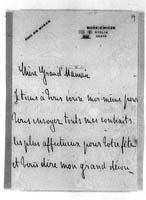 Chère Grand'Maman
Je tiens à vous écrire moi-même pour
vous envoyer tous mes souhaits
les plus affectueux pour votre fête
et vous dire mon grand désir